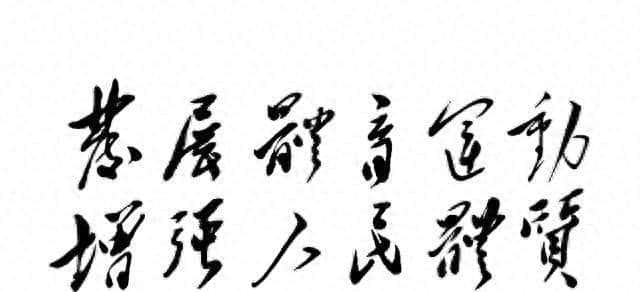 發展體育運動
增强人民體質